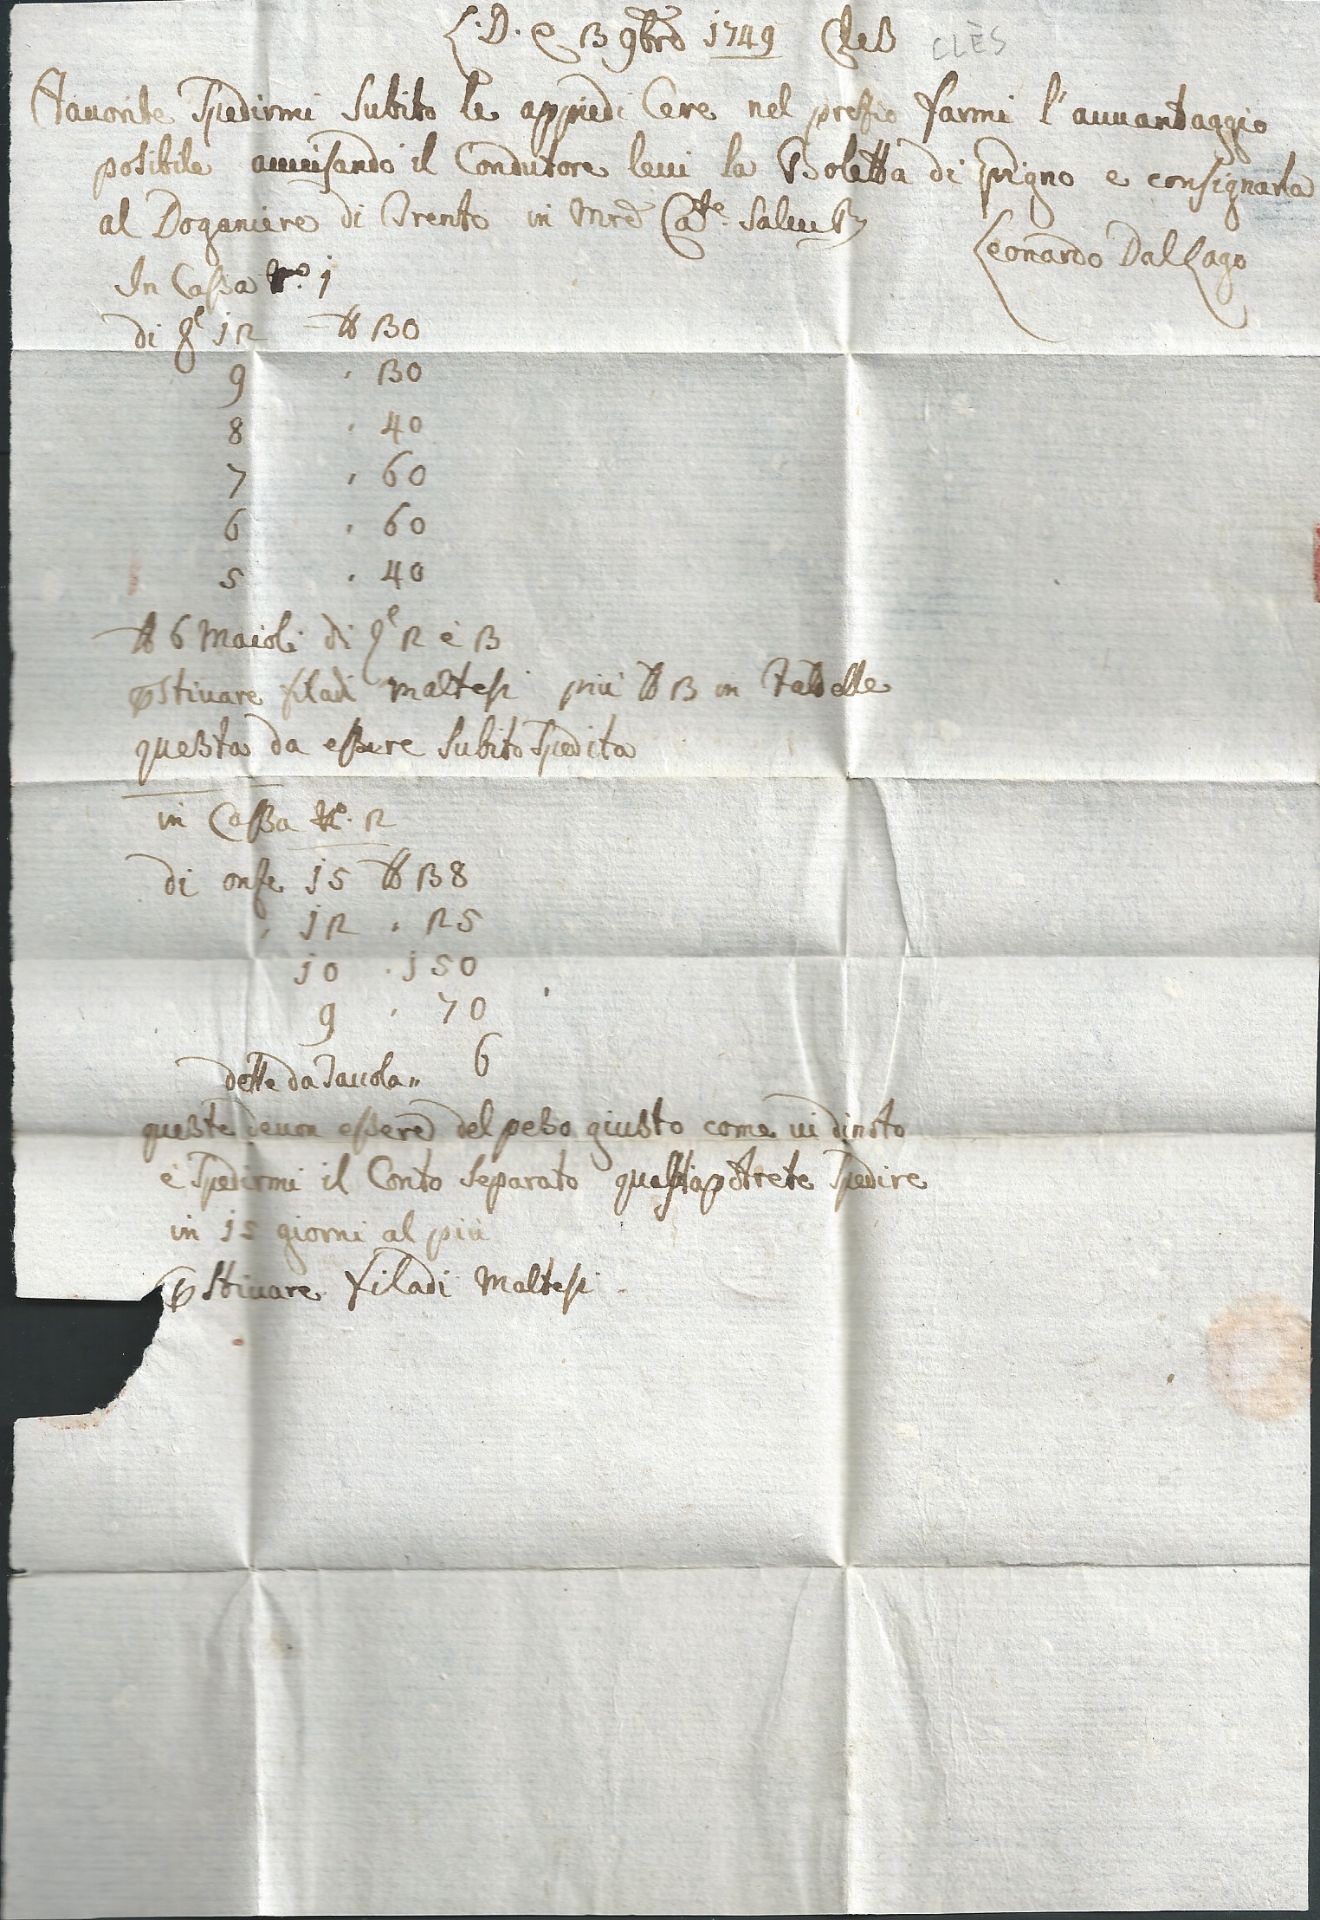 L. D. e 3 9bre 1749 Cles CLÈS
Fauorite Spedirmi Subito le appiedi Cere nel presio farmi l'auuantaggio
posibile auuisando il Condutore leui la Boletta di Pigno e consignarla
al Doganiere di Trento in Mre Salu
Leonardo Dal Lago
In Cassa No. 1
di 12 ℔ 30
9 " 30
8 " 40
7 " 60
6 " 60
5 " 40
℔ 6 Maioli di 2 è 3
Stiuare filadi maltesi più ℔ 3 in Tabelle
questa da essere Subito Spedita
in Cassa No. 2
di onse 15 ℔ 38
" 12 " 25
10 " 150
9 " 70
dette da Tauola " 6
queste deuon essere del peso giusto come ui dinoto
è Spedirmi il Conto Separato questa potrete Spedire
in 15 giorni al più
Stiuare filadi Maltesi